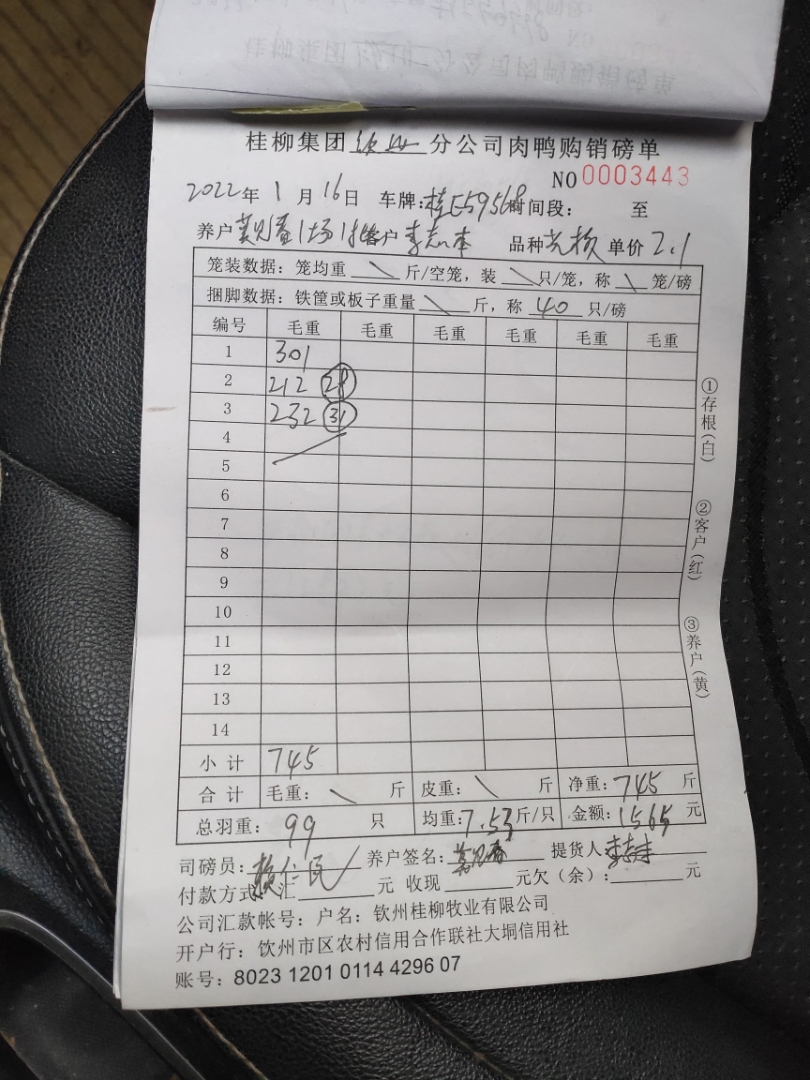 桂柳集团 钦州 分公司肉鸭购销磅单
NO 0003443
2022年 1 月 16日 车牌:桂E59568 时间段: 至
养户 春1场1批 客户 李志本 品种 单价 2.1
笼装数据:笼均重 \ 斤/空笼,装 \ 只/笼,称 \ 笼/磅
捆脚数据:铁筐或板子重量 \ 斤,称 40 只/磅
编号 毛重 毛重 毛重 毛重 毛重 毛重
1 301
2 212 28
3 232 31
4
5
6
7
8
9
10
11
12
13
14
小 计 745
合 计 毛重: \ 斤 皮重: \ 斤 净重:745 斤
总羽重: 99 只 均重:7.53斤/只 金额:1565 元
司磅员: 养户签名: 提货人 李志本
付款方式: 汇 元 收现 元欠(余): 元
公司汇款帐号:户名:钦州桂柳牧业有限公司
开户行:饮州市区农村信用合作联社大垌信用社
账号:8023 1201 0114 4296 07
①存根(白)
②客户(红)
③养户(黄)